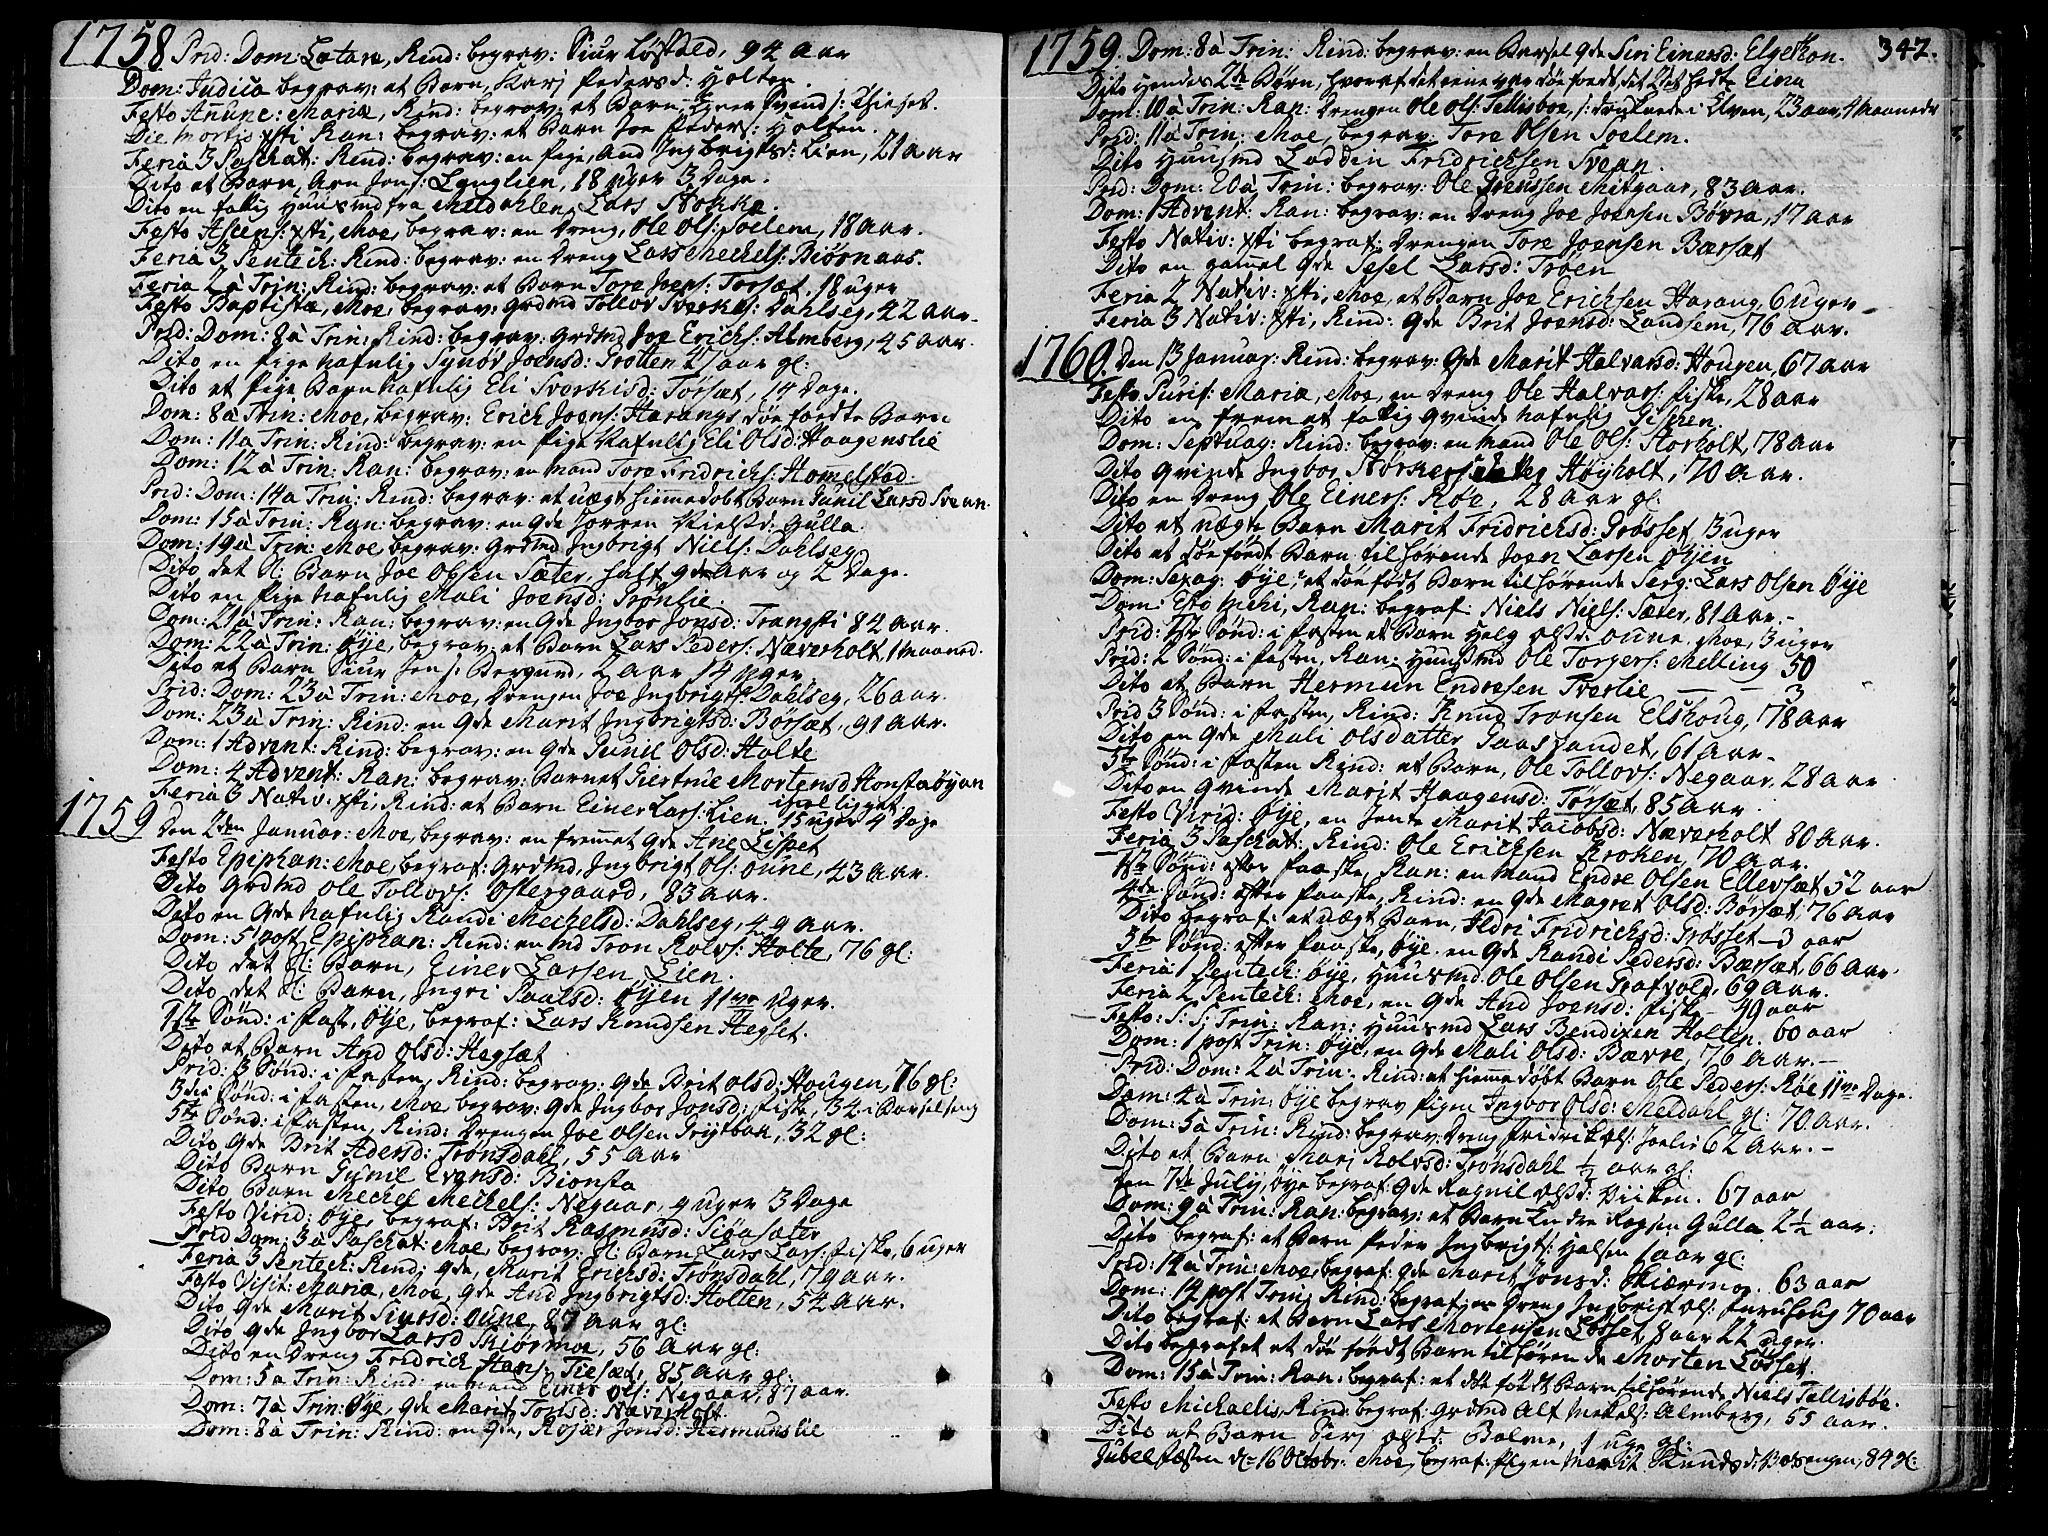 1758 Prid: Dom: Lætare, Rind: begrav: Siur Løsæted, 94 Aar
Dom: Judica begrav: et Barn, Karj Pedersd: Holten.
Festo Anunc: Mariæ, Rind: begrav: et Barn Svend
Die mortis xsti Ran: begrav: et Barn Joe Peders: Holten.
Feria 3 Paschat: Rind: begrav: en pige, And Ingbrigtsd: Lien, 21 aar
Dito et Barn, Arn Jons: Lynglien, 18 uger 3 Dage.
Dito en fattig Huusmd fra Meldahlen Lars Stokke.
Festo Ascens: xsti, Moe, begrav: en Dreng, Ole Ols: Soelem, 18 aar.
Feria 3 Pentech: Rind: begrav: en Dreng Lars Mechels: Biørnaas.
Feria 2 Trin: Rind: begrav: et Barn Tore Joens: Torsæt, 18 uger
Festo Baptistæ, Moe, begrav: Grdmd Tollov Sverkes: Dahlseg, 42 aar.
Prid: Dom: 8 à Trin: Rind: begrav: Grdmd Joe Erichs: Almberg, 45 aar.
Dito en pige nafnlig Synøv Joensd: 47 aar gl:
Dito et pige Barn nafnlig Eli Sverkisd: Torsæt, 14 Dage.
Dom: 8 à Trin: Moe, begrav: Erich Joens: Harangs døe fødte Barn
Dom: 11 à Trin: Rind: begrav: en pige Nafnlig Eli Olsd: Haagenslie
Dom: 12 à Trin: Ran: begrav: en mand Tore Fridrichs: Homelstad:
Prid: Dom: 14 à Trin: Rind: begrav: et uægt hiemmedøbt Barn Gunil Larsd Svean.
Dom: 15 à Trin: Ran: begrav: en Qde Sorren Nielsd: Gulla.
Dom: 19 à Trin: Moe, begrav: Grdmd Ingbrigt Niels: Dahlseg
Dito det Sl: Barn Joe Olsen Sæter, half aar og 2 Dage.
Dito en pige nafnlig Mali Joensd: Trønlie.
Dom: 21 à Trin: Ran: begrav: en Qde Ingbor Jonsd: Trangsti 84 aar.
Dom: 22 à Trin: Øye, begrav: et Barn Lars Peders: Næverholt, 1 maaned.
Dito et Barn Siur Jens: Bergund, 2 aar 14 uger
Prid: Dom: 23 à Trin: Moe, Drengen Joe Ingbrigts: Dahlseg, 26 aar.
Dom: 23 à Trin: Rind: en Qde Marit Ingbrigtsd: Børsæt, 91 aar.
Dom: 1 Advent: Rind: begrav: en Qde Gunil Olsd: Holte
Dom: 4 Advent: Ran: begrav: Barnet Giertrue Mortensd Honstaøyan
Feria 3 Nativ: xsti, Rind: et Barn Einer Lars: Lien. ihiel ligget 15 uger 4 Dage
1759 Den 2den Januar: Moe, begrav: en fremet Qde Ane Lispet
Festo Epiphan: Moe, begraf: Grdmd, Ingbrigt Ols: Oune, 43 aar.
Dito Grdmd Ole Tollovs: Ostergaard, 83 aar.
Dito en Qde nafnlig Randi Mechelsd: Dahlseg, 49 aar.
Dom: 5 post Epiphan: Rind: en md Tron Rolvs: Holte, 76 gl:
Dito det Sl: Barn, Einer Larsen Lien.
Dito det Sl: Barn, Ingri Paalsd: Øyen 11ve uger.
1ste Sønd: i faste, Øye, begraf: Lars Knudsen Hegset.
Dito et Barn And Olsd: Hegsæt
Prid: 3 Sønd: i fasten, Rind: begrav: Qde Brit Olsd: Hougen, 76 gl:
3die Sønd: i fasten, Moe, begrav: Qde Ingbor Jonsd: Fiske, 34 i Barselseng
5te Sønd: i fasten, Rind: Drengen Joe Olsen Grytbak, 32 gl:
Dito Qde Brit Adersd: Trønsdahl, 55 aar
Dito Barn Gunil Evensd: Bionsta
Dito Barn Mechel Mechels: Negaar, 4 uger 3 Dage
Festo Virid: Øye, begraf: Brit Rasmusd: Sioasæter
Prid Dom: 3 à Paschat: Moe, begrav: Sl: Barn Lars Lars: Fiske, 6 uger
Feria 3 Pentech: Rind: Qde, Marit Erichsd: Trønsdahl, 79 aar.
Festo Visit: Mariæ, Moe, Qde And Ingbrigtsd: Holten, 54 aar.
Dito Qde Marit Siursd: Oune, 87 aar gl:
Dito Qde Ingbor Larsd Skiørmoe, 56 aar gl:
Dito en Dreng Fridrich Hans: Tiesæt, 85 aar gl:
Dom: 5 à Trin: Rind: en mand Einer Ols: Negaar 87 aar.
Dom: 7 à Trin: Øye, Qde Marit Tonsd: Næverholt.
Dom: 8 à Trin: Rind: en Qde, Rojær Jonsd: Hermunslie
347.
1759. Dom: 8 à Trin: Rind: begrav: en Barsel Qde Siri Einersd: Elgetkon.
Dito Hendes 2de Børn, hvoraf det eene var døe fød, det 2det hedte Eina
Dom: 10 à Trin: Ran: Drengen Ole Ols: Tellisboe, s: druknede i Elven, 23 aar, 4 maaneder
Prid: 11 à Trin: Moe, begrav: Tore Olsen Soelem.
Dito Huusmd Loddin Fridrichsen Svean.
Prid: Dom: 20 à Trin: begrav: Ole Jenssen Mitgaar, 83 aar.
Dom: 1 Advent: Ran: begrav: en Dreng Joe Joensen Bøvra, 17 aar
Festo Nativ: xsti begraf: Drengen Tore Joensen Bærsæt
Dito en gamel Qde Sesel Larsd: Trøen
Feria 2 Nativ: xsti, Moe, et Barn Joe Erichsen Harang, 6 uger
Feria 3 Nativ: xsti, Rind: Qde Brit Joensd: Landsem, 76 aar.
1760. Den 13 Januar: Rind: begrav: Qde Marit Halvarsd: Hougen, 67 aar
Festo Purif: Mariæ, Moe, en Dreng Ole Halvars: Fiske, 28 aar
Dito en fremet fattig Qvinde nafnlig Gischen.
Dom: Septuag: Rind: begrav: en mand Ole Ols: Storholt, 78 aar
Dito Qvinde Ingbor Størkers Høyholt, 70 aar.
Dito en Dreng Ole Einers: Røe, 28 aar gl:
Dito et uægte Barn Marit Fridrichsd: Grøsset, 3 uger
Dito et døe født Barn tilhørende Joen Larsen Øyen
Dom: Sexag: Øye, et døe født Barn tilhørende Serg: Lars Olsen Øye
Dom: Esto mihi, Ran: begraf: Niels Niels: Sæter, 81 aar.
Prid: 1ste Sønd: i fasten et Barn Helg Olsd: Oune, Moe, 3 uger
Prid: 2 Sønd: i fasten, Ran: Huusmd Ole Torgers: Melting 50
Dito et Barn Hermun Endresen Tverlie — 3
Prid 3 Sønd: i fasten, Rind: Knud Tronsen Elshoug, 78 aar
Dito en Qde Mali Olsdatter Saassandet, 61 aar.
5te Sønd: i fasten Rind: et Barn, Ole Tollovs: Negaar, 28 aar
Dito en Qvinde Marit Haagensd: Torsæt, 85 aar.
Festo Virid: Øye, en Jente Marit Jacobsd: Næverholt 80 aar.
Feria 3 Paschat: Rind: Ole Erichsen Kroken, 70 aar.
1ste Sønd: efter Paaske, Ran: en mand Endre Olsen Ellevsæt 52 aar
4de Sønd: efter Paaske, Rind: en Qde Magret Olsd: Børsæt, 76 aar
Dito begraf: et uægt Barn, Ildri Fridrichsd: Grøsset — 3 aar
5te Sønd: efter Paaske, Øye, en Qde Randi Pedersd: Bærsæt, 66 aar.
Feria 1 Pentech: Øye, Huusmd Ole Olsen Grafvold, 69 aar.
Feria 2 Pentech: Moe, en Qde And Joensd: Fiske — 49 aar
Festo: S: S: Trin: Ran: Huusmd Lars Bendixen Holten. 60 aar
Dom: 1 post Trin: Øye, en Qde Mali Olsd: Bævre, 76 aar.
Prid: Dom: 2 à Trin: Rind: et hiemmedøbt Barn Ole Peders: Røe 11ve Dage.
Dom: 4 à Trin: Øye begrav pigen Ingbor Olsd: Meldahl gl: 70 aar.
Dom: 5 à Trin: Rind: begrav: Dreng Fridrik Ols: Joelie 62 aar.
Dito et Barn Marj Rolvsd: Trønsdahl ½ aar gl:
Den 7de July, Øye begraf: Qde Ragnil Olsd: Viiken. 67 aar
Dom: 9 à Trin: Ran: begrav: et Barn Endre Rogsen Gulla 2½ aar.
Dito begraf: et Barn Peder Ingbrigts: Halsen 1 aar gl:
Prid: 12 à Trin: Moe, begraf: Qde Marit Jonsd: Skiærmo. 63 aar
Dom: 14 post Trin: Rind: begraf: en Dreng Ingbrigt Ols: Furuhoug 70 aar
Dito begraf: et Barn Lars Mortensen Løsset, 8 aar 22 uger.
Dito begrafet et døe født Barn tilhørende Morten Løsset.
Dom: 15 à Trin: Ran: begraf: et døe født Barn tilhørende Niels Tellisbøe.
Festo Michaelis, Rind: begraf: Grdmd Alf Mekels: Almberg, 55 aar.
Dito et Barn Siri Olsd: Bolme, 1 uge gl:
Jubel fæsten d: 16 Octobr: Moe, begraf: Pigen Marit Knudsd: Botsengen, 84 gl: